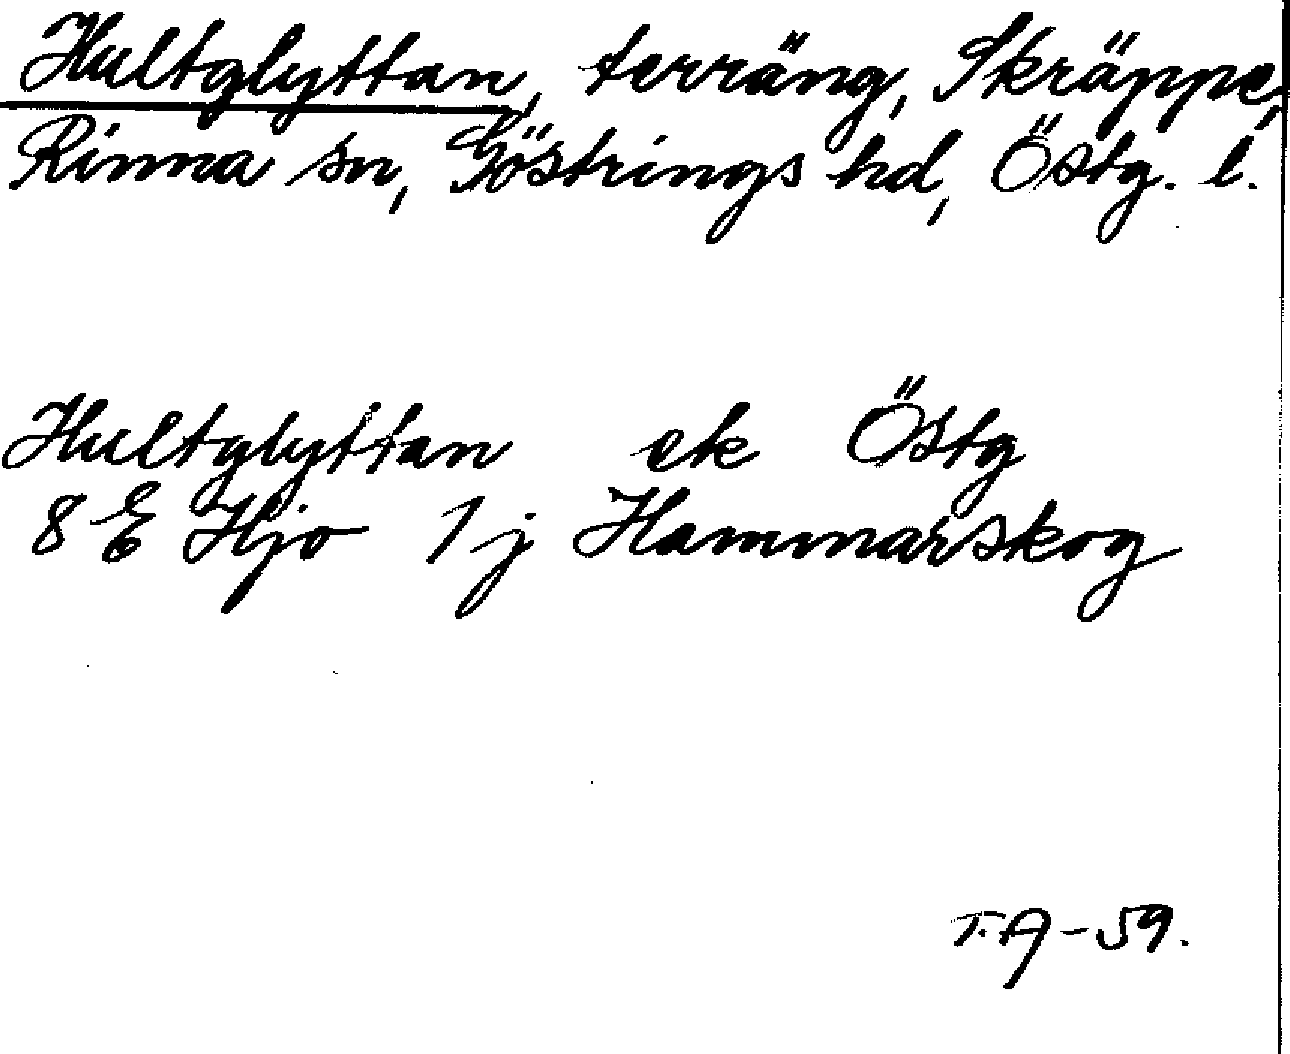 Hultglyttan, terräng, Skräppe,
Rinna sn, Göstrings hd, Östg. l.
Hultglyttan ek Östg
8 E Hjo 1 j Hammarskog
T.A-59.